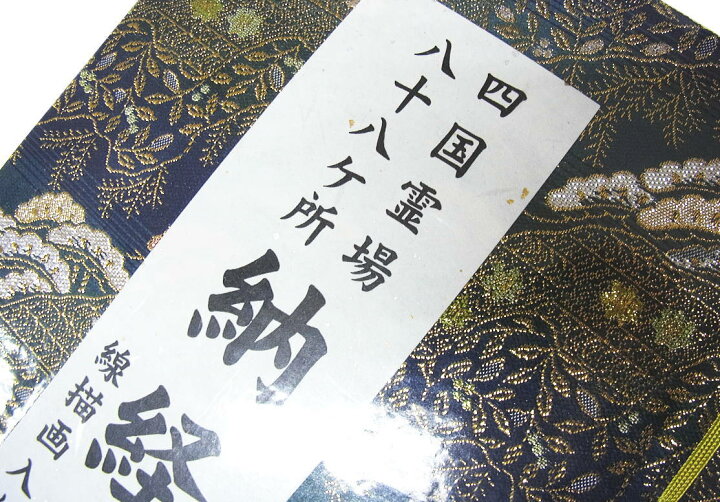 四国霊場
八十八ケ所
納経
線描画入